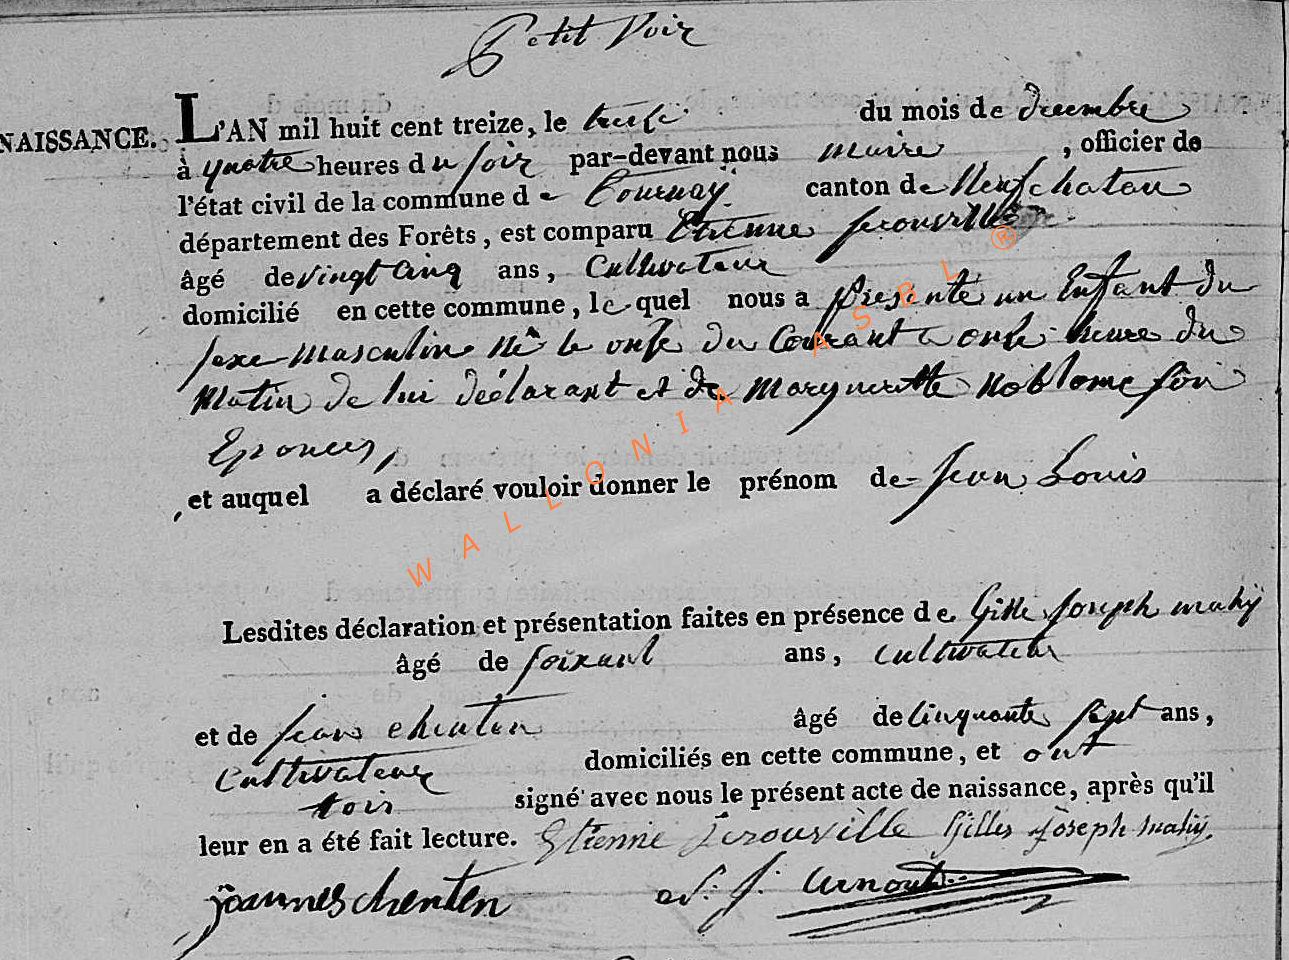 Petit Voir
NAISSANCE. L'AN mil huit cent treize, le treise du mois de decembre
à quatre heures du soir par-devant nous maire , officier de
l'état civil de la commune de Tournay canton de Neufchateau
département des Forêts, est comparu Etienne Jerouville
âgé de vingt cinq ans, Cultivateur
domicilié en cette commune, lequel nous a presenté un Enfant du
sexe Masculin né le onse du Courant a onse heure du
Matin de lui déclarant et de Margueritte Noblome son
Epouces,
, et auquel a déclaré vouloir donner le prénom de Jean Louis
Lesdites déclaration et présentation faites en présence de Gille Joseph mahy
âgé de soixant ans, cultivateur
et de Jean chenten âgé de cinquante sept ans,
Cultivateur domiciliés en cette commune, et ont
tois signé avec nous le présent acte de naissance, après qu'il
leur en a été fait lecture. Etienne Jerouville Gilles Joseph mahy.
joannes chenten J. Arnould
WALLONIA ASBL ®